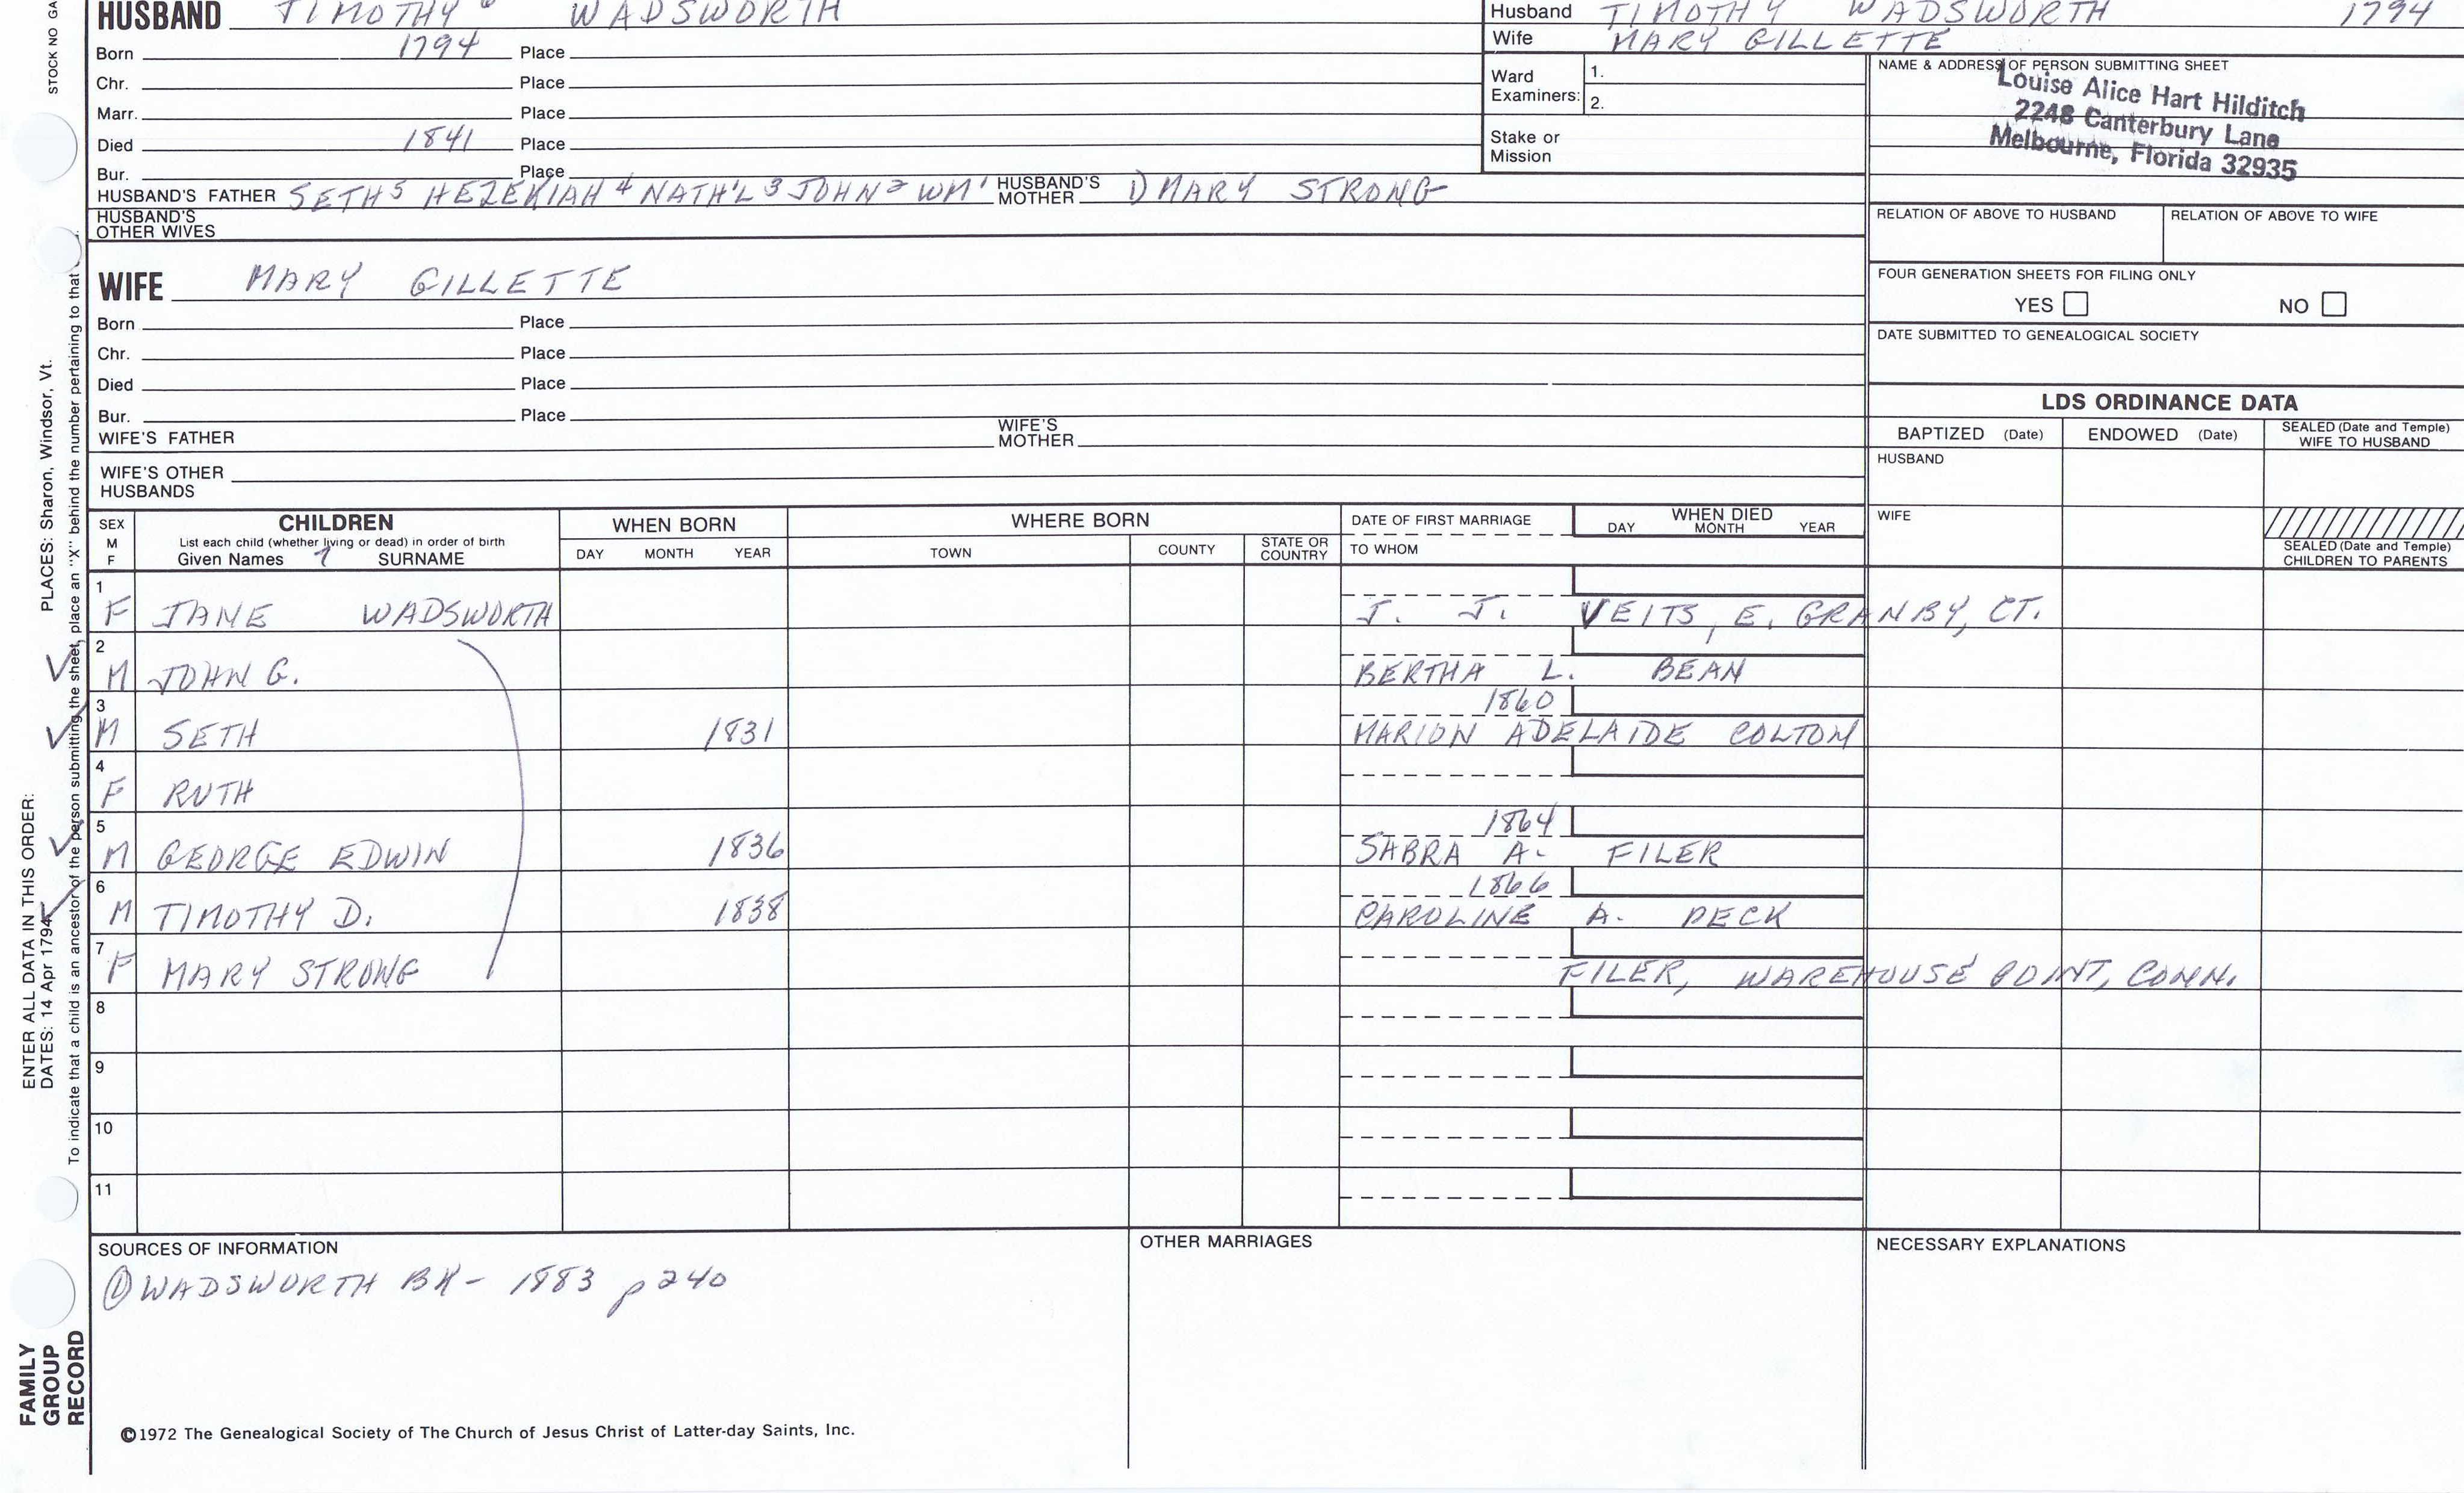 HUSBAND TIMOTHY 6 WADSWORTH
Born 1794 Place
Chr. Place
Marr. Place
Died 1841 Place
Bur. Place
HUSBAND'S FATHER SETH 5 HEZEKIAH 4 NATH'L 3 JOHN 2 WM 1 HUSBAND'S MOTHER 1) MARY STRONG
HUSBAND'S OTHER WIVES
Husband TIMOTHY WADSWORTH 1794
Wife MARY GILLETTE
Ward Examiners: 1.
2.
Stake or Mission
NAME & ADDRESS OF PERSON SUBMITTING SHEET
Louise Alice Hart Hilditch
2248 Canterbury Lane
Melbourne, Florida 32935
RELATION OF ABOVE TO HUSBAND RELATION OF ABOVE TO WIFE
FOUR GENERATION SHEETS FOR FILING ONLY
YES NO
DATE SUBMITTED TO GENEALOGICAL SOCIETY
WIFE MARY GILLETTE
Born Place
Chr. Place
Died Place
Bur. Place
WIFE'S FATHER WIFE'S MOTHER
WIFE'S OTHER HUSBANDS
LDS ORDINANCE DATA
BAPTIZED (Date) ENDOWED (Date) SEALED (Date and Temple) WIFE TO HUSBAND
HUSBAND
WIFE
SEALED (Date and Temple) CHILDREN TO PARENTS
SEX M F
CHILDREN
List each child (whether living or dead) in order of birth
Given Names 7 SURNAME
WHEN BORN
DAY MONTH YEAR
WHERE BORN
TOWN COUNTY STATE OR COUNTRY
DATE OF FIRST MARRIAGE
TO WHOM
WHEN DIED
DAY MONTH YEAR
1 F JANE WADSWORTH J. J. VEITS, E. GRANBY, CT.
2 M JOHN G. BERTHA L. BEAN
3 M SETH 1831 1860 MARION ADELAIDE COLTON
4 F RUTH
5 M GEORGE EDWIN 1836 1864 SABRA A. FILER
6 M TIMOTHY D. 1838 1866 CAROLINE A. PECK
7 F MARY STRONG FILER, WAREHOUSE POINT, CONN.
8
9
10
11
SOURCES OF INFORMATION
① WADSWORTH BK - 1883 p 240
OTHER MARRIAGES
NECESSARY EXPLANATIONS
©1972 The Genealogical Society of The Church of Jesus Christ of Latter-day Saints, Inc.
FAMILY GROUP RECORD
ENTER ALL DATA IN THIS ORDER:
DATES: 14 Apr 1794 PLACES: Sharon, Windsor, Vt.
To indicate that a child is an ancestor of the person submitting the sheet, place an "X" behind the number pertaining to that
STOCK NO GA